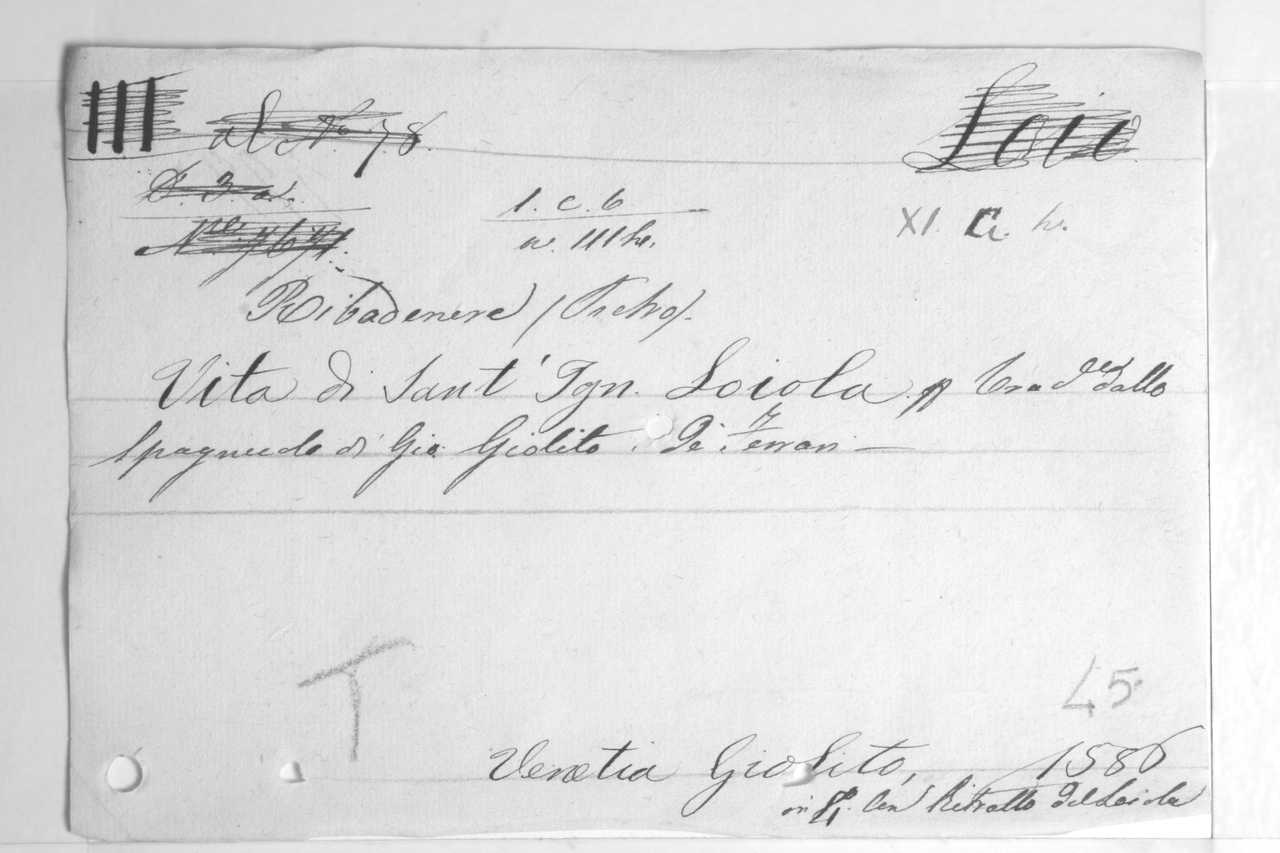 III al No. 78. Loio
S. 3. a. 1. c. 6
XI. G. h.
a. III h.
Ribadenera (Pietro).
Vita di Sant' Ign. Loiola trad. dallo
Spagnuolo di Gio. Giolito De' Ferrari —
T
45
Venetia Giolito, 1586
in 4. Con Ritratto del Loiola